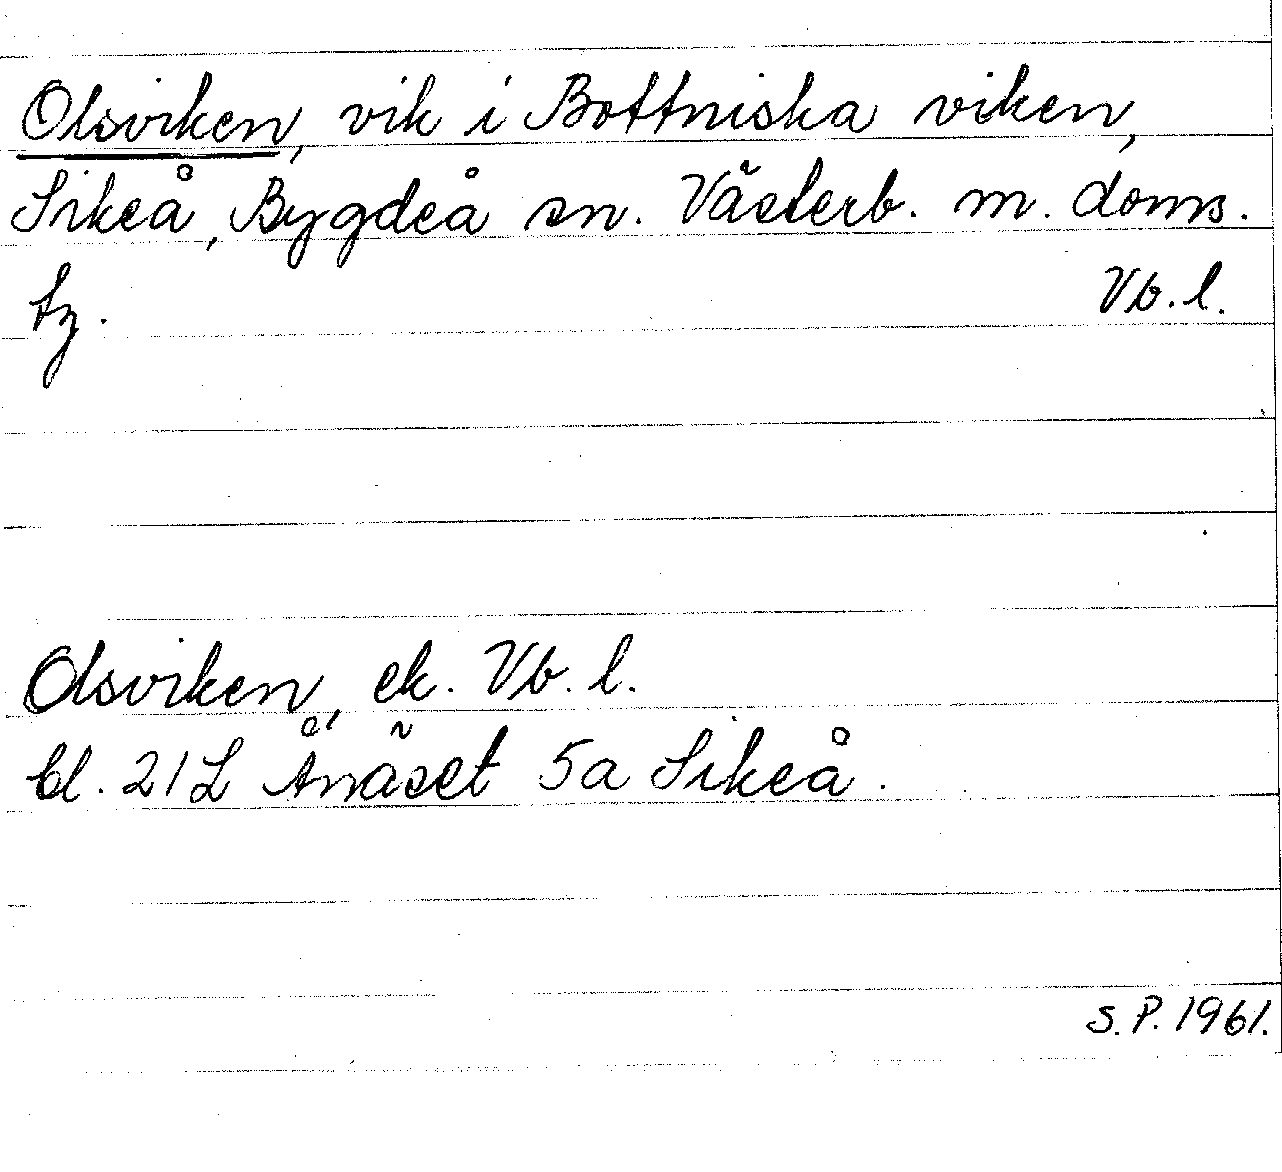 Olsviken, vik i Bottniska viken,
Sikeå, Bygdeå sn. Västerb. m. doms.
tg. Vb. l.
Olsviken, ek. Vb. l.
bl. 21L Ånäset 5a Sikeå.
S.P. 1961.